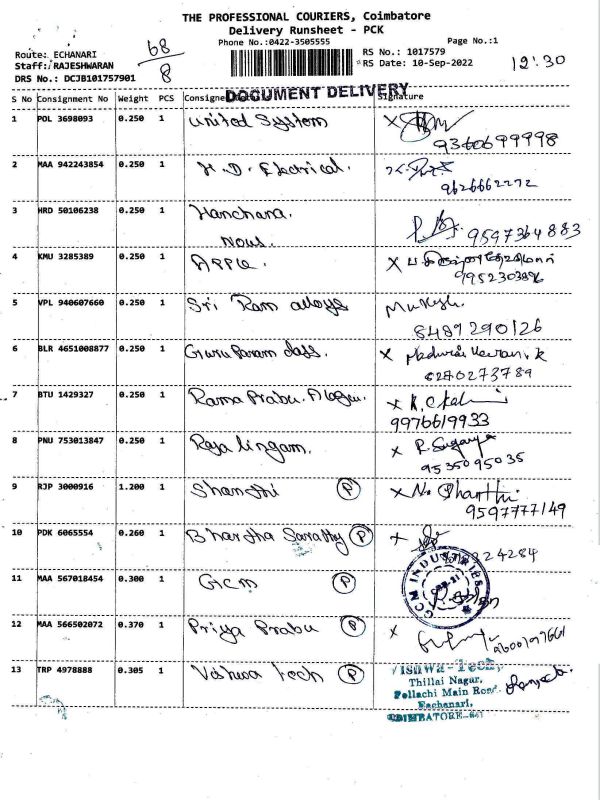 THE PROFESSIONAL COURIERS, Coimbatore
Delivery Runsheet - PCK
Phone No.:0422-3505555
Page No.:1
Route: ECHANARI
Staff: RAJESHWARAN
DRS No.: DCJB101757901
68/8
RS No.: 1017579
RS Date: 10-Sep-2022
12:30
S No Consignment No Weight PCS Consignee Signature
DOCUMENT DELIVERY
1 POL 3698093 0.250 1 United System 9360699998
2 MAA 942243854 0.250 1 H.D. Electrical. 9626662272
3 HRD 50106238 0.250 1 Hanchana. 9597364883
Nous.
4 KMU 3285389 0.250 1 Apple. 9952303896
5 VPL 940607660 0.250 1 Sri Ram alloys Mukesh.
8489290126
6 BLR 4651008877 0.250 1 Guru Param dass.
6280273789
7 BTU 1429327 0.250 1 Rama Prabu.
9976619933
8 PNU 753013847 0.250 1 Raja lingam. R. Suganya
9535095035
9 RJP 3000916 1.200 1 Shanthi P
9597777149
10 PDK 6065554 0.260 1 Bhartha Saratty P
324284
11 MAA 567018454 0.300 1 GCM P
GCM INDUSTRIES
12 MAA 566502072 0.370 1 Priya Prabu P
13 TRP 4978888 0.305 1 Vishwa tech P
Vishwa-Tech,
Thillai Nagar,
Pollachi Main Road,
Eachanari,
COIMBATORE